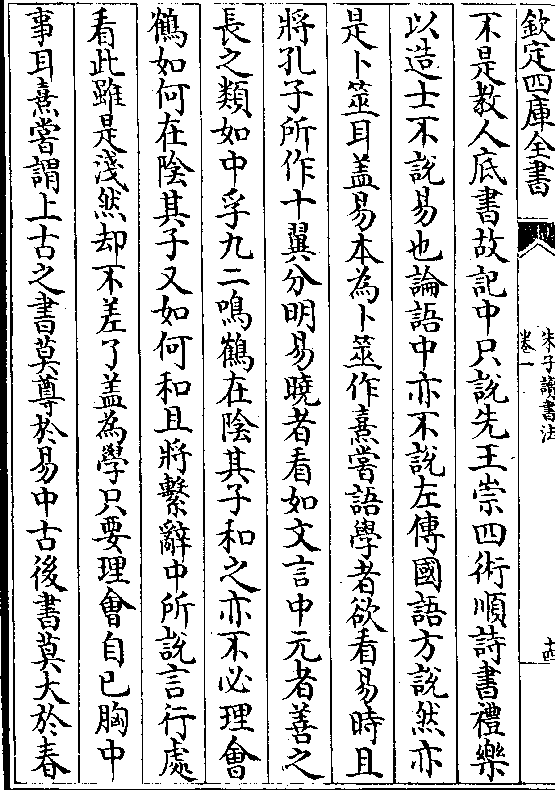 欽定四庫全書
朱子讀書法
卷一
十四
不是教人底書故記中只說先王崇四術順詩書禮樂
以造士不說易也論語中亦不說左傳國語方說然亦
是卜筮耳盖易本為卜筮作熹嘗語學者欲看易時且
將孔子所作十翼分明易曉者看如文言中元者善之
長之類如中孚九二鳴鶴在陰其子和之亦不必理會
鶴如何在陰其子又如何和且將繫辭中所說言行處
看此雖是淺然却不差了盖為學只要理會自已胸中
事耳熹嘗謂上古之書莫尊於易中古後書莫大於春